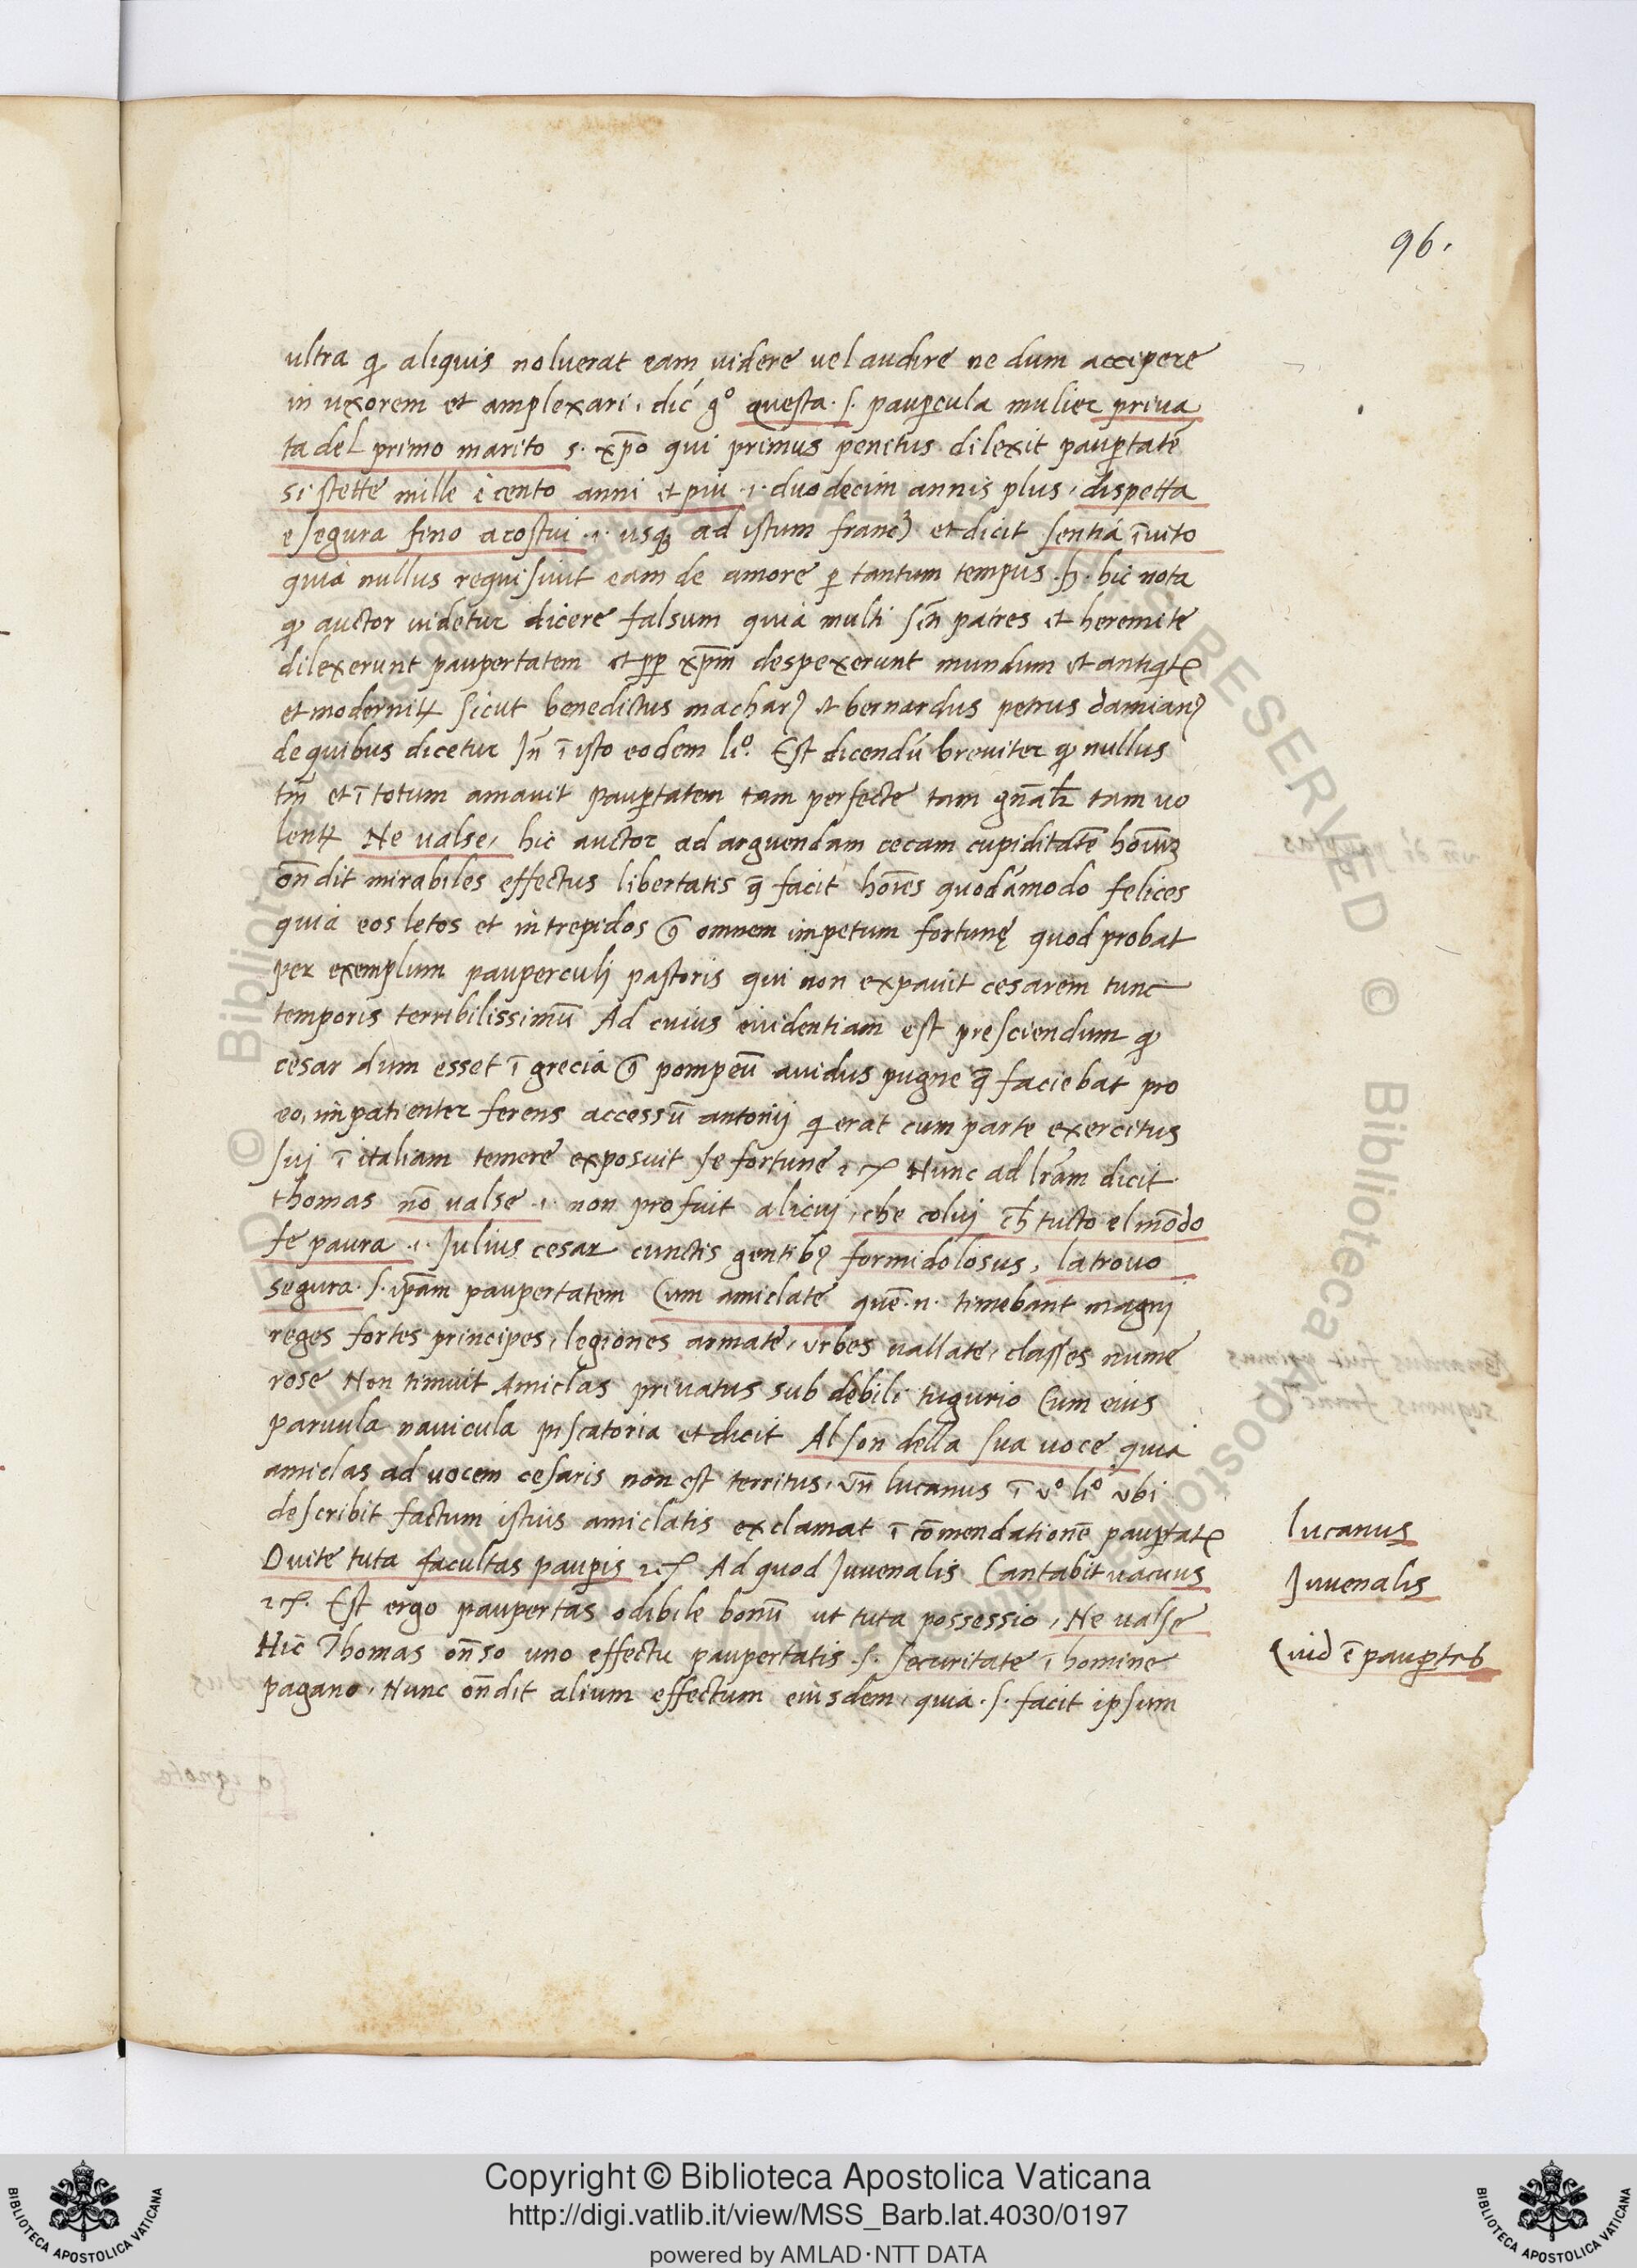 96.
ultra ꝙ aliquis noluerat eam videre vel audire ne dum accipere
in uxorem et amplexari. dic̃ gͦ questa .s. pauꝑcula mulier priua
ta del primo marito s. xp̃o qui primus penitus dilexit pauꝑtatẽ
si stette mille è cento anni et piu .i. duodecim annis plus, dispetta
e segura fino a costui .i. usqꝫ ad istum franc̃ et dicit sentia ĩuito
quia nullus requisiuit eam de amore ꝑ tantum tempus . hic nota
ꝙ auctor videtur dicere falsum quia multi sc̃ti patres et heremite
dilexerunt paupertatem et ꝓꝑ xp̃m despexerunt mundum et antiqͥtꝰ
et moderniť sicut benedictus machariꝰ et bernardus petrus damianꝰ
de quibus dicetur ĩ isto eodem liͦ. Est dicendũ breuiter ꝙ nullus
tm̃ et ĩ totum amauit pauꝑtatem tam perfecte tam gn̄alr̃ tam vo
lenť Ne valse, hic auctor ad arguendam cecam cupiditatẽ hoĩuꝫ
on̄dit mirabiles effectus libertatis q̃ facit hoĩes quodãmodo felices
quia eos letos et intrepidos ꝯ̃ omnem impetum fortunę quod probat
per exemplum pauperculi pastoris qui non expauit cesarem tunc
temporis terribilissimũ Ad cuius euidentiam est presciendum ꝙ
cesar dum esset ĩ grecia ꝯ̃ pompeũ avidus pugne q̃ faciebat pro
eo, impatienter ferens accessũ antonij qͥ erat cum parte exercitus
sui ĩ italiam temere exposuit se fortune, ⁊c̃ Nunc ad lr̃am dicit
thomas nõ valse .i. non profuit alicui, che colui ch̃ tucto el mõdo
fe paura .i. Julius cesar cunctis gentibꝰ formidolosus, la trouo
segura .s. ip̃am paupertatem Cum amiclate quẽ .n. timebant magnj
reges fortes principes, legiones armate, vrbes uallate, classes nume
rose Non timuit Amiclas priuatus sub debili tugurio Cum eius
paruula nauicula piscatoria et dicit Al son della sua uoce quia
amiclas ad uocem cesaris non est territus, vñ lucanus ĩ vͦ liͦ vbi
describit factum istius amiclatis exclamat ĩ cõmendationẽ pauꝑtatꝭ
O uite tuta facultas pauꝑis ⁊c̃. Ad quod Juuenalis Cantabit uacuus
⁊c̃. Est ergo paupertas odibile bonũ ut tuta possessio, Ne valse
Hic Thomas on̄so uno effectu paupertatis .s. securitate ĩ homine
pagano. Nunc on̄dit alium effectum eiusdem, quia .s. facit ipsum
lucanus
Juuenalis
Quid ẽ pauꝑtas
Copyright © Biblioteca Apostolica Vaticana
http://digi.vatlib.it/view/MSS_Barb.lat.4030/0197
powered by AMLAD·NTT DATA
BIBLIOTECA APOSTOLICA VATICANA
BIBLIOTECA APOSTOLICA VATICANA